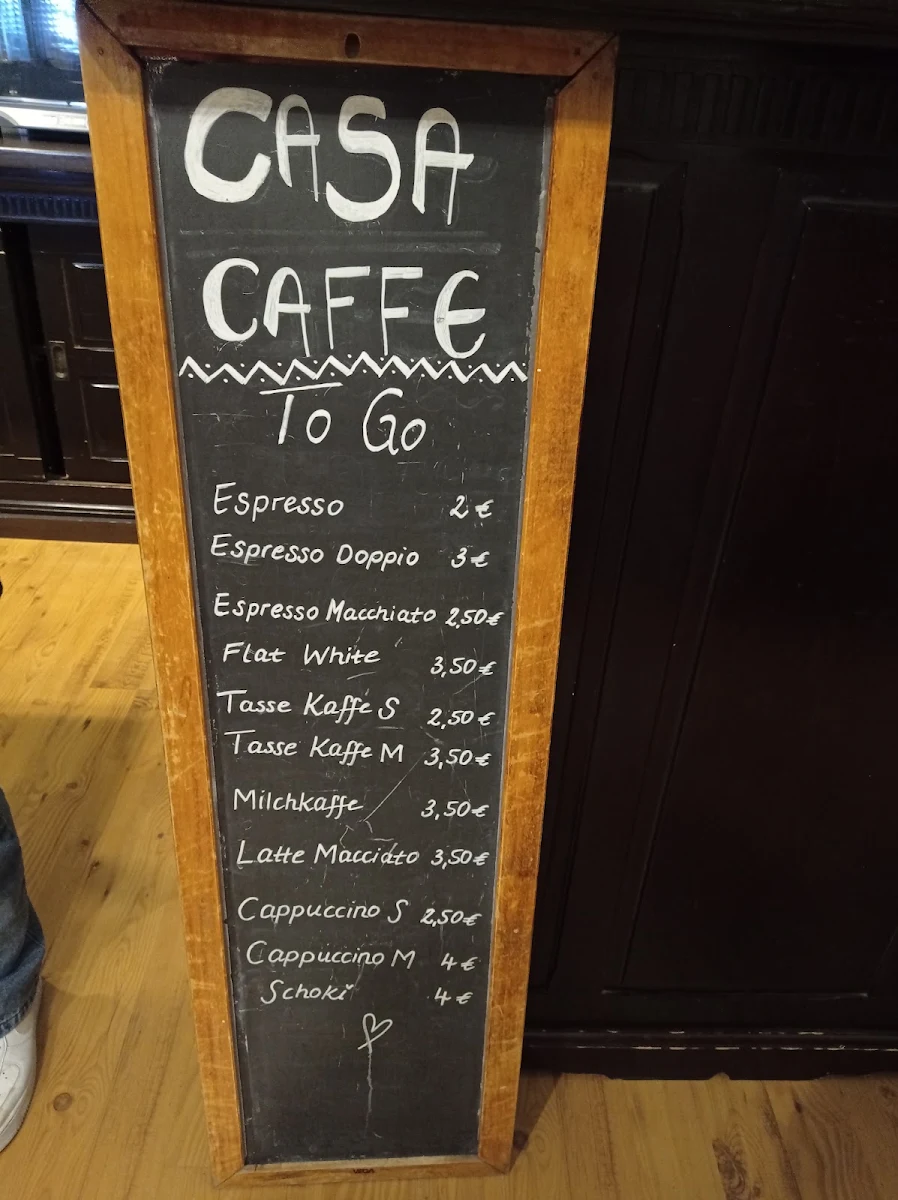 CASA
CAFFE
To Go
Espresso 2 €
Espresso Doppio 3 €
Espresso Macchiato 2,50 €
Flat White 3,50 €
Tasse Kaffe S 2,50 €
Tasse Kaffe M 3,50 €
Milchkaffe 3,50 €
Latte Macciato 3,50 €
Cappuccino S 2,50 €
Cappuccino M 4 €
Schoki 4 €